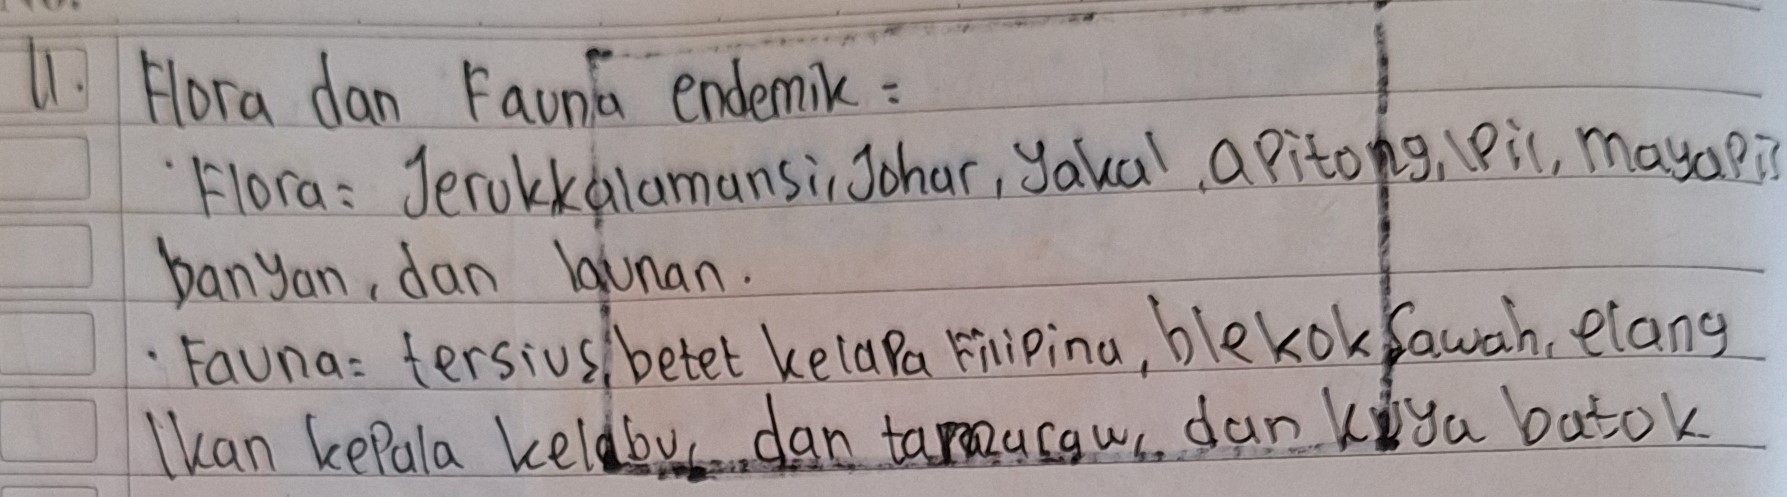 11. Flora dan Fauna endemik =
· Flora = Jerukkalamansi, Johar, Yakal, apitong, ipil, mayapis
banyan, dan launan.
· Fauna = tersius, betet kelapa Filipina, blekok sawah, elang
Ikan kepala kelabu, dan tamaraw, dan kuya batok